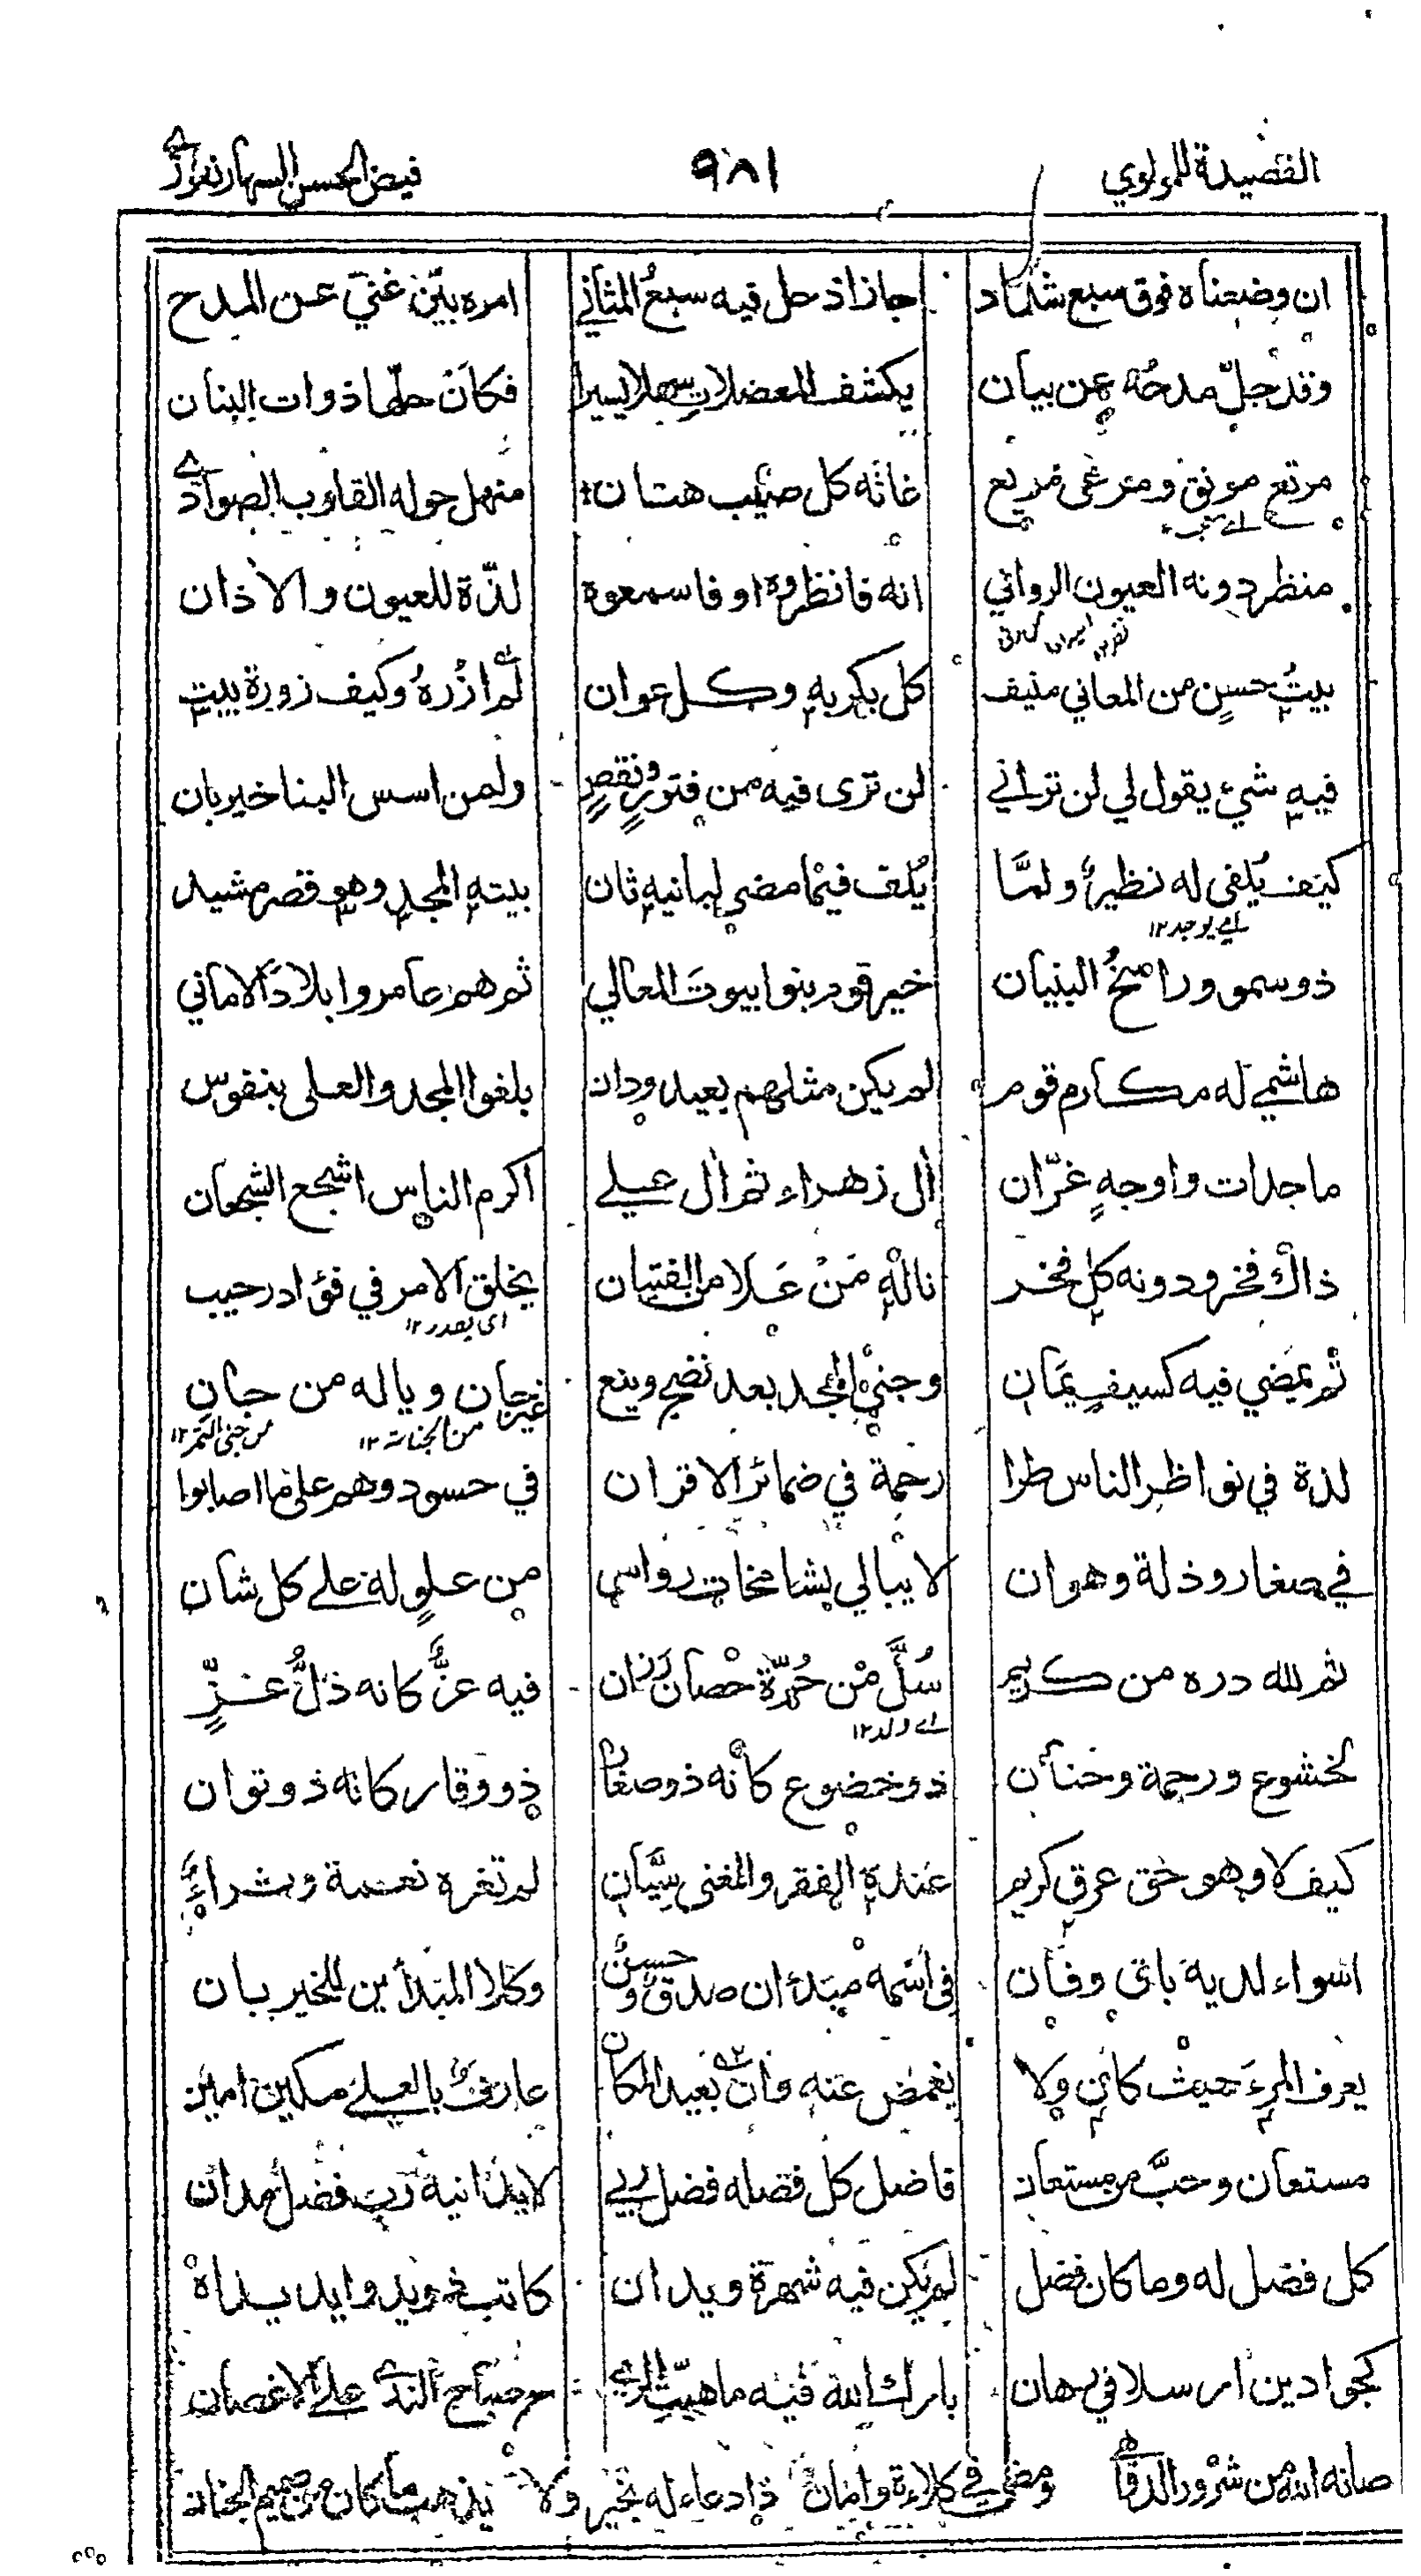 القصيدة للمولوي ٩٨١ فيض الحسن السهارنفوري
ان وضعناه فوق سبع شداد جاز اذ حل فيه سبعُ المثاني امره بيّن غنيّ عن المدح
وقد جلّ مدحُه عن بيان يكشف المعضلاتِ سهلا يسيرا فكانْ حلّها ذوات البنان
مرتع مونق ومرعى مريع غاثه كل صيّب هتان منهل حوله القلوب الصوادي
منظر دونه العيون الرواني انه فانظروه او فاسمعوه لذّة للعيون والاذان
بيتُ حسنٍ من المعاني منيف كل بكر به وكل عوان لم ازُرهُ وكيف زورة بيت
فيه شئ يقول لي لن تراني لن ترى فيه من فتورٍ ونقصٍ ولمن اسس البنا خير بان
كيف يُلفى له نظير ولمَّا يُلف فيما مضى لبانيه ثان بيته المجد وهو قصر مشيد
اي يوجد ١٢
ذو سمو وراسخُ البنيان خير قوم بنوا بيوتَ المعالي ثم هم عامروا بلادَ الاماني
هاشمي له مكارم قوم لم يكن مثلهم بعيد ودان بلغوا المجد والعلى بنفوس
ماجدات واوجهٍ غرّان اٰل زهراء ثم اٰل علي اكرم الناس اشجع الشجعان
ذاك فخر ودونه كل فخر ناله مَنْ عَلا من الفتيان يخلق الامر في فؤاد رحيب
ثم يمضي فيه كسيف يمَان وجنى المجد بعد نضج وينع غير جان ويا له من جانِ
من الجناية ١٢ من جنى الثمر ١٢
لذة في نواظر الناس طرا رحمة في ضمائر الاقران في حسود وهم على ما اصابوا
في صغار وذلة وهوان لا يبالي بشامخات رواسي من علوٍ له على كل شان
ثم لله دره من كريم سُلَّ مْن حُرّة حصان رزان فيه عزٌّ كانه ذلُّ عزٍّ
اے ولد ١٢
لخشوع ورحمة وحنان ذو خضوع كانه ذو صغار ذو وقار كانه ذو توان
كيف لا وهو حق عرق كريم عنده الفقر والغنى سيَّان لم تغره نعمة وثراء
اسواء لديه باق وفان في اسمه مبتدء ان صدق وحسن وكلا المبتدأين للخير بان
يعرف المرءَ حيث كان ولا يغمض عنه وان بعيد المكان عارف بالعلى مكين امين
مستعان وحبَّ من مستعان فاضل كل فضله فضل ربي لا يدانيه رب فضل مدان
كل فضل له وما كان فضل لم يكن فيه شهرة ويدان كاتب يداه
كجوادين ارسلا في رهان بارك الله فيه ما هبّت الريح صباح الندى على الاغصان
صانه الله من شرور ومضى في كلاءة وامان ذا دعاء له بخير ولا يذهب ما كان من صميم الجنان